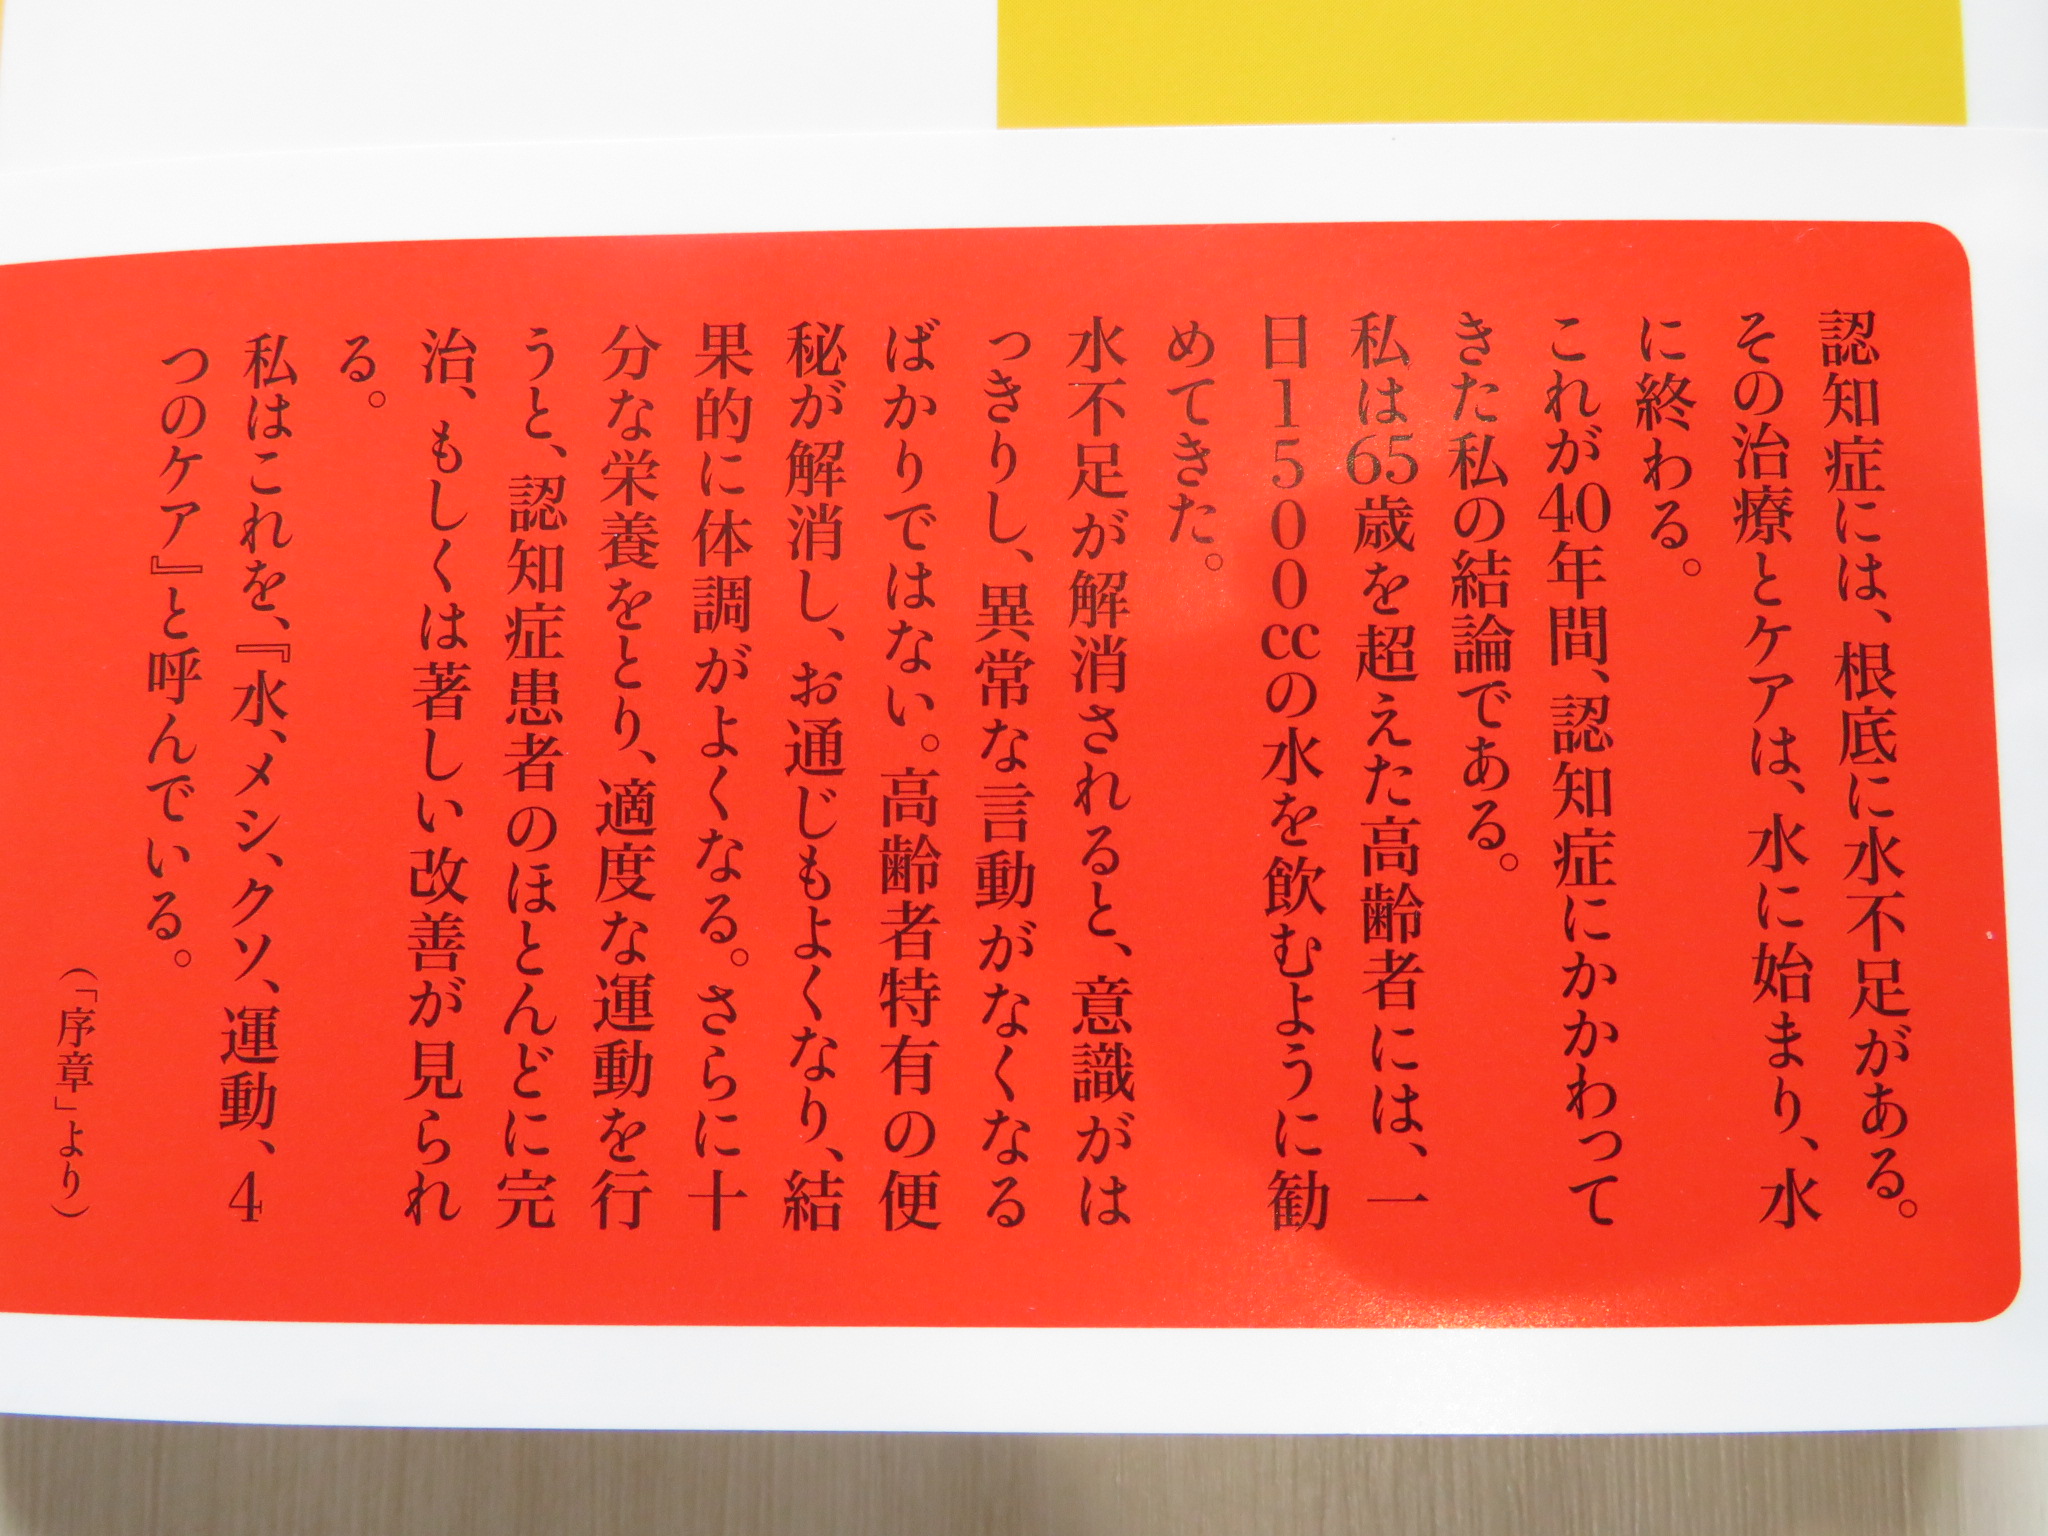 認知症には、根底に水不足がある。
その治療とケアは、水に始まり、水
に終わる。
これが40年間、認知症にかかわって
きた私の結論である。
私は65歳を超えた高齢者には、一
日1500ccの水を飲むように勧
めてきた。
水不足が解消されると、意識がは
っきりし、異常な言動がなくなる
ばかりではない。高齢者特有の便
秘が解消し、お通じもよくなり、結
果的に体調がよくなる。さらに十
分な栄養をとり、適度な運動を行
うと、認知症患者のほとんどに完
治、もしくは著しい改善が見られ
る。
私はこれを、『水、メシ、クソ、運動、4
つのケア』と呼んでいる。
(「序章」より)